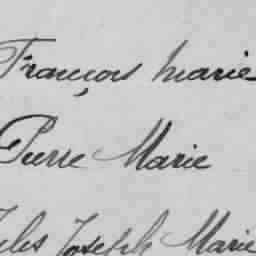 François Marie
Pierre Marie
Jules Joseph Marie